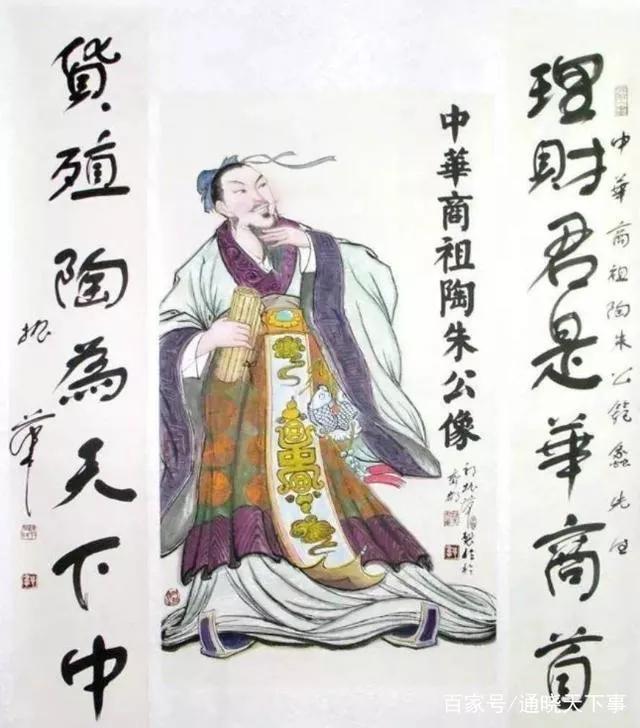 中華商祖陶朱公範蠡先生
理財君是華商首
中華商祖陶朱公像
貨殖陶為天下中
振華
百家号/通晓天下事